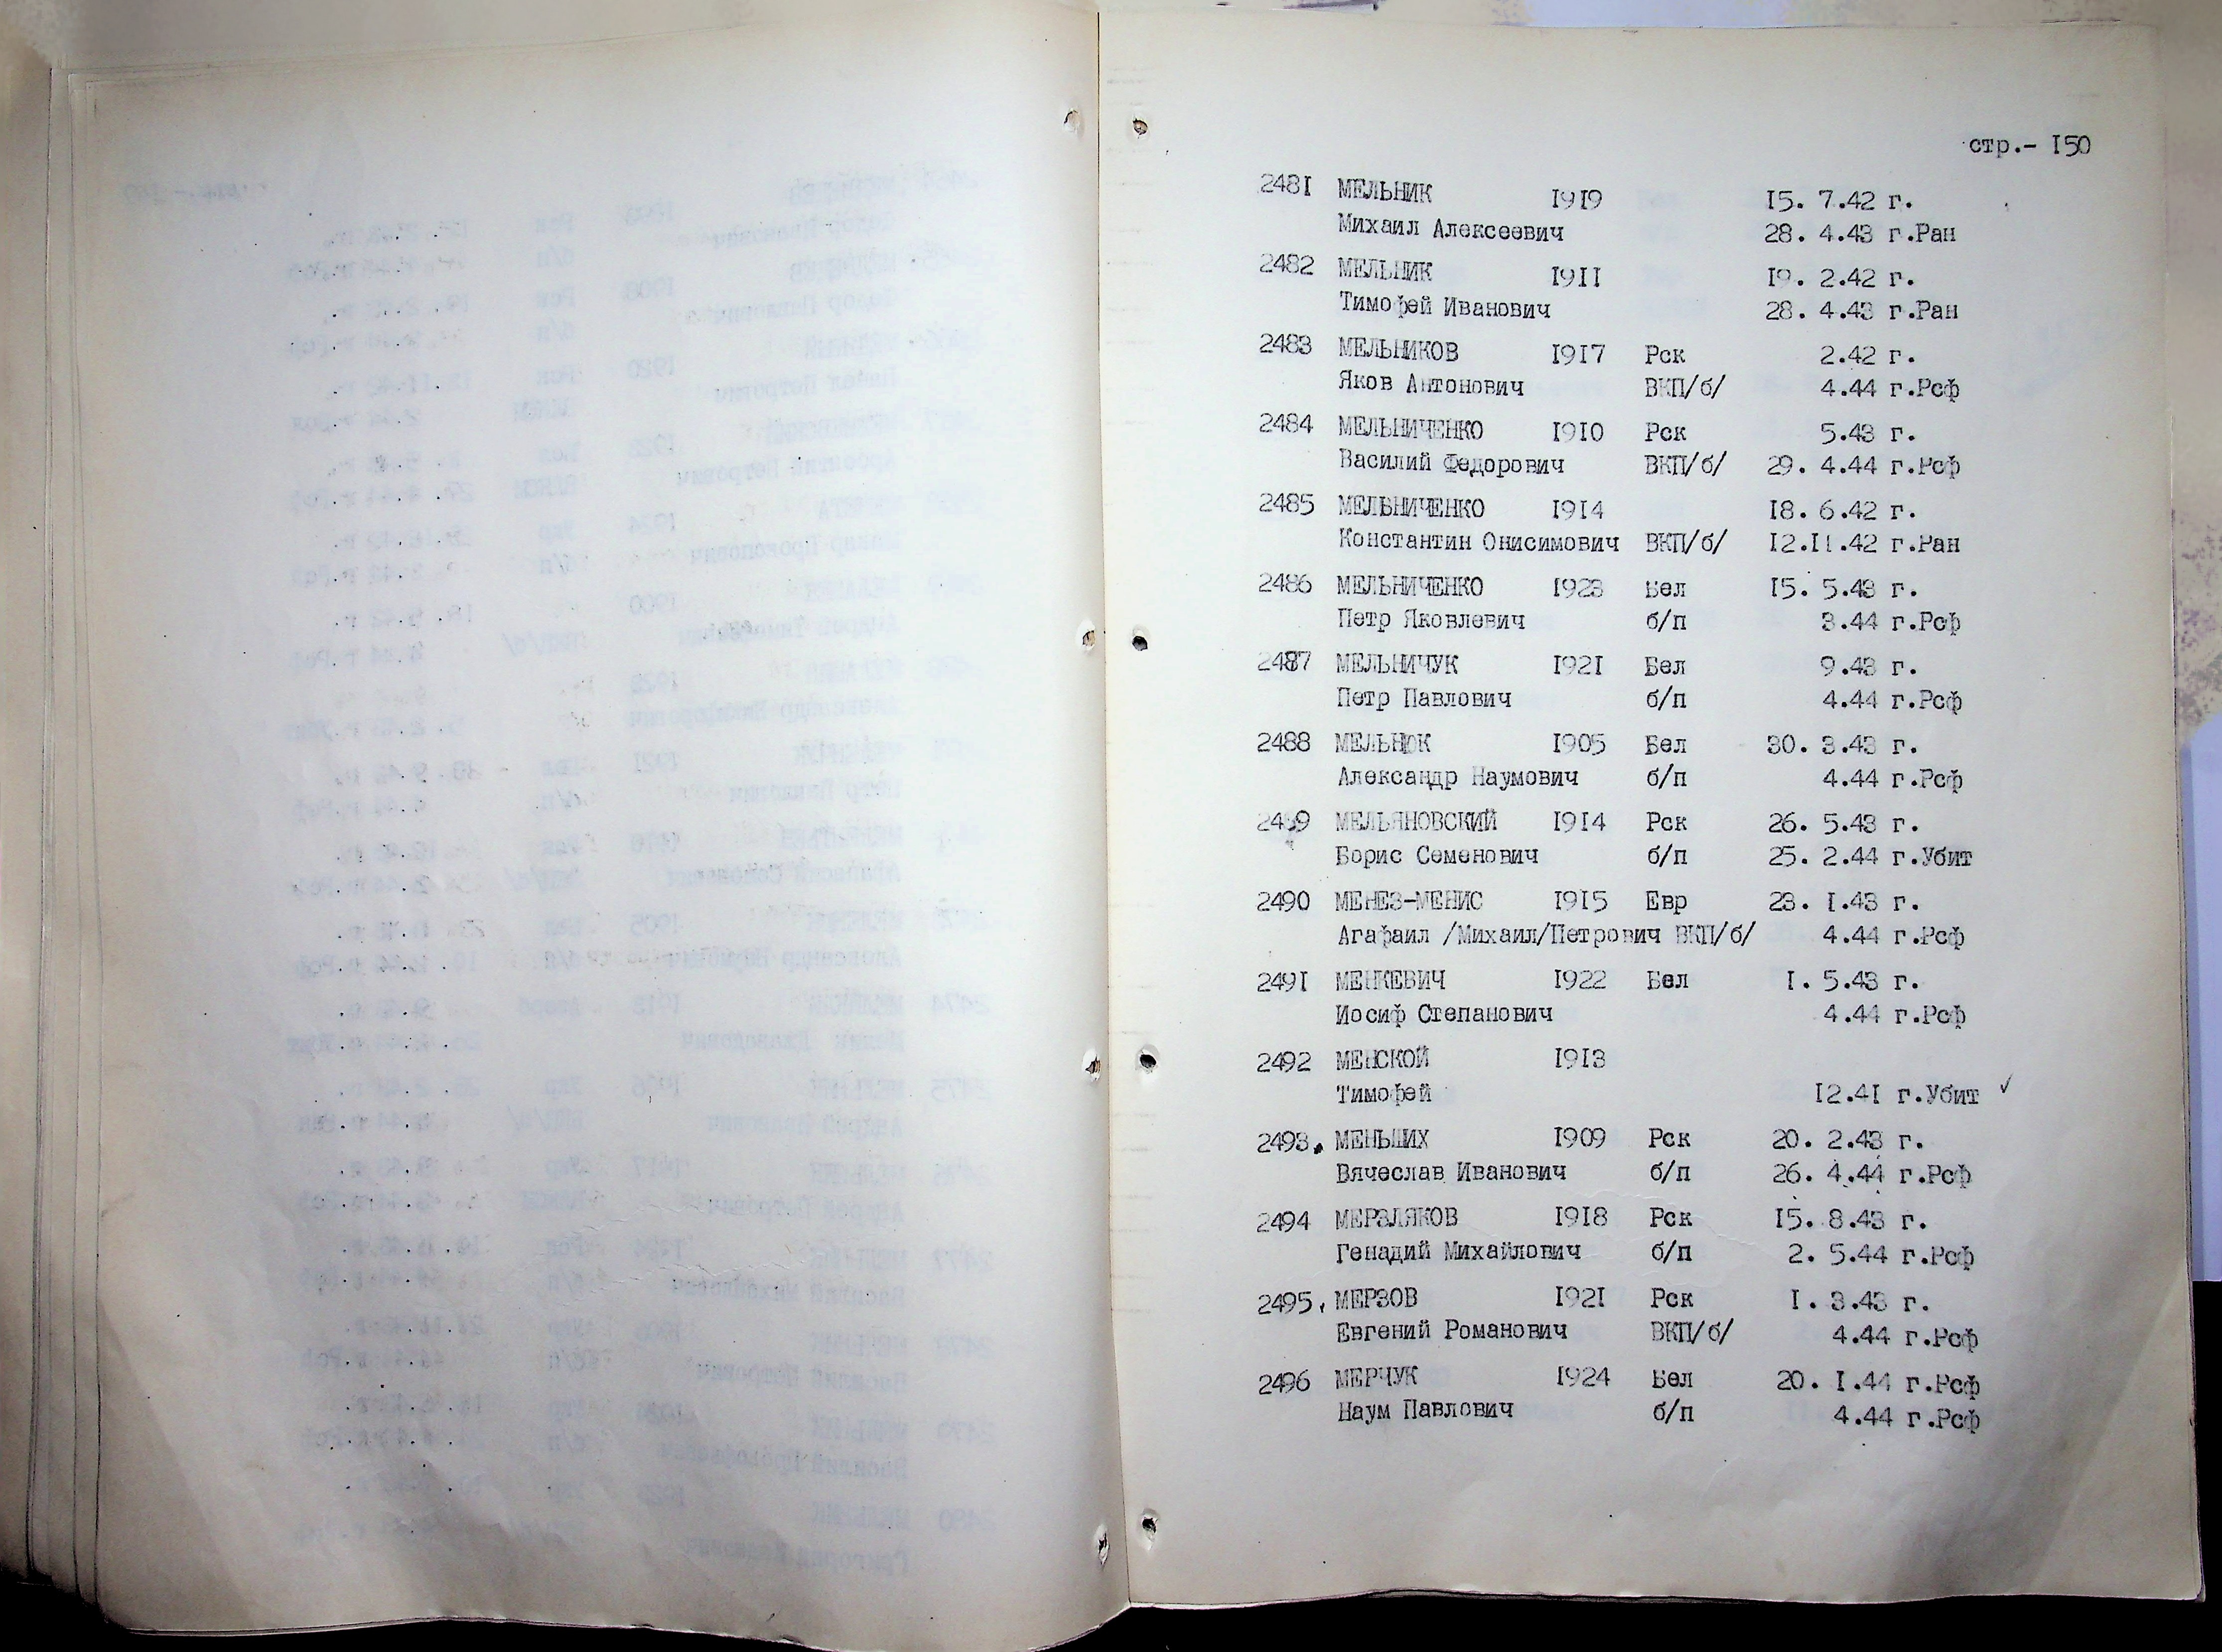 стр.- I50
2481 МЕЛЬНИК 1919 15. 7.42 г.
Михаил Алексеевич 28. 4.43 г.Ран
2482 МЕЛЬНИК 1911 19. 2.42 г.
Тимофей Иванович 28. 4.43 г.Ран
2483 МЕЛЬНИКОВ 1917 Рск 2.42 г.
Яков Антонович ВКП/б/ 4.44 г.Рсф
2484 МЕЛЬНИЧЕНКО 1910 Рск 5.43 г.
Василий Федорович ВКП/б/ 29. 4.44 г.Рсф
2485 МЕЛЬНИЧЕНКО 1914 18. 6.42 г.
Константин Онисимович ВКП/б/ 12.11.42 г.Ран
2486 МЕЛЬНИЧЕНКО 1923 Бел 15. 5.43 г.
Петр Яковлевич б/п 3.44 г.Рсф
2487 МЕЛЬНИЧУК 1921 Бел 9.43 г.
Петр Павлович б/п 4.44 г.Рсф
2488 МЕЛЬНЮК 1905 Бел 30. 3.43 г.
Александр Наумович б/п 4.44 г.Рсф
2489 МЕЛЬЯНОВСКИЙ 1914 Рск 26. 5.43 г.
Борис Семенович б/п 25. 2.44 г.Убит
2490 МЕНЕЗ-МЕНИС 1915 Евр 23. 1.43 г.
Агафаил /Михаил/Петрович ВКП/б/ 4.44 г.Рсф
2491 МЕНКЕВИЧ 1922 Бел 1. 5.43 г.
Иосиф Степанович 4.44 г.Рсф
2492 МЕНСКОЙ 1913
Тимофей 12.41 г.Убит ✓
2493. МЕНЬШИХ 1909 Рск 20. 2.43 г.
Вячеслав Иванович б/п 26. 4.44 г.Рсф
2494 МЕРЗЛЯКОВ 1918 Рск 15. 8.43 г.
Генадий Михайлович б/п 2. 5.44 г.Рсф
2495. МЕРЗОВ 1921 Рск 1. 3.43 г.
Евгений Романович ВКП/б/ 4.44 г.Рсф
2496 МЕРЧУК 1924 Бел 20. 1.44 г.Рсф
Наум Павлович б/п 4.44 г.Рсф